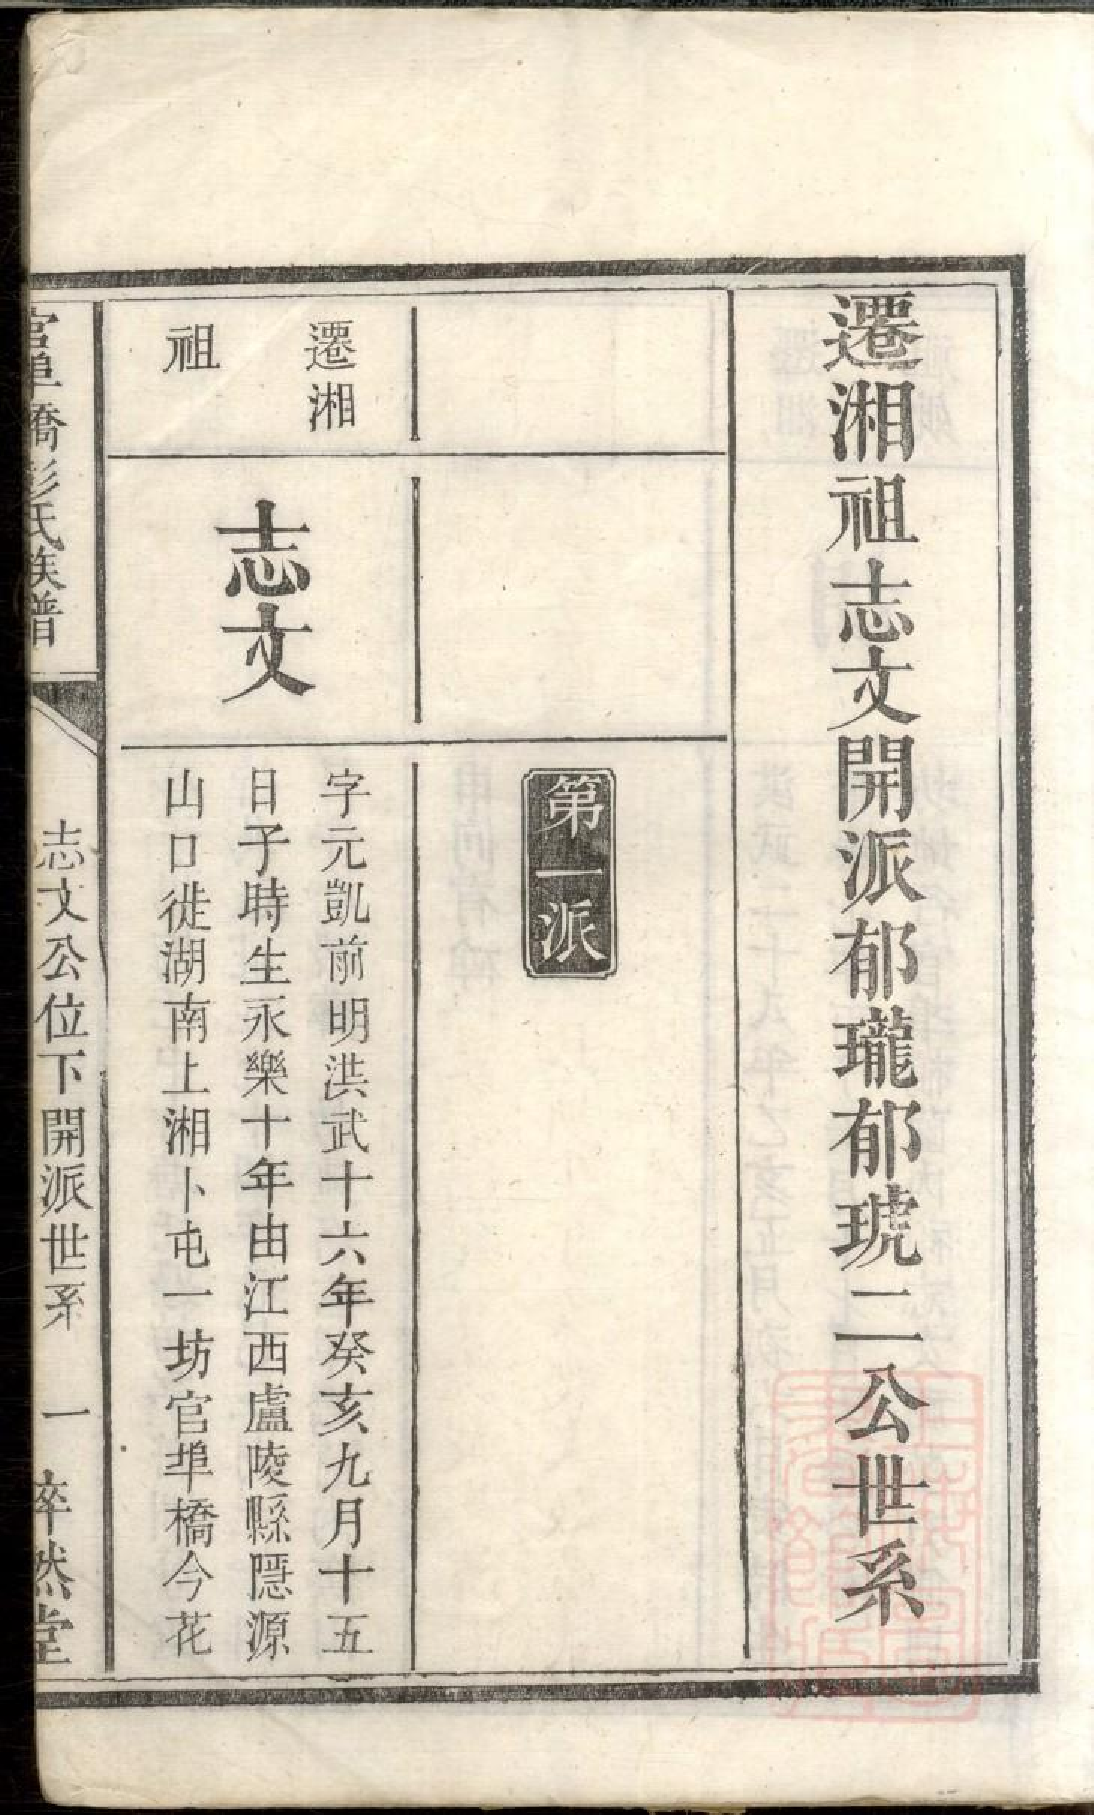 遷湘祖志文開派郁瓏郁琥二公世系
第一派
遷湘
祖
志文
字元凱前明洪武十六年癸亥九月十五
日子時生永樂十年由江西盧陵縣隱源
山口徙湖南上湘卜屯一坊官埠橋今花
官埠橋彭氏族譜
志文公位下開派世系
一
萃然堂